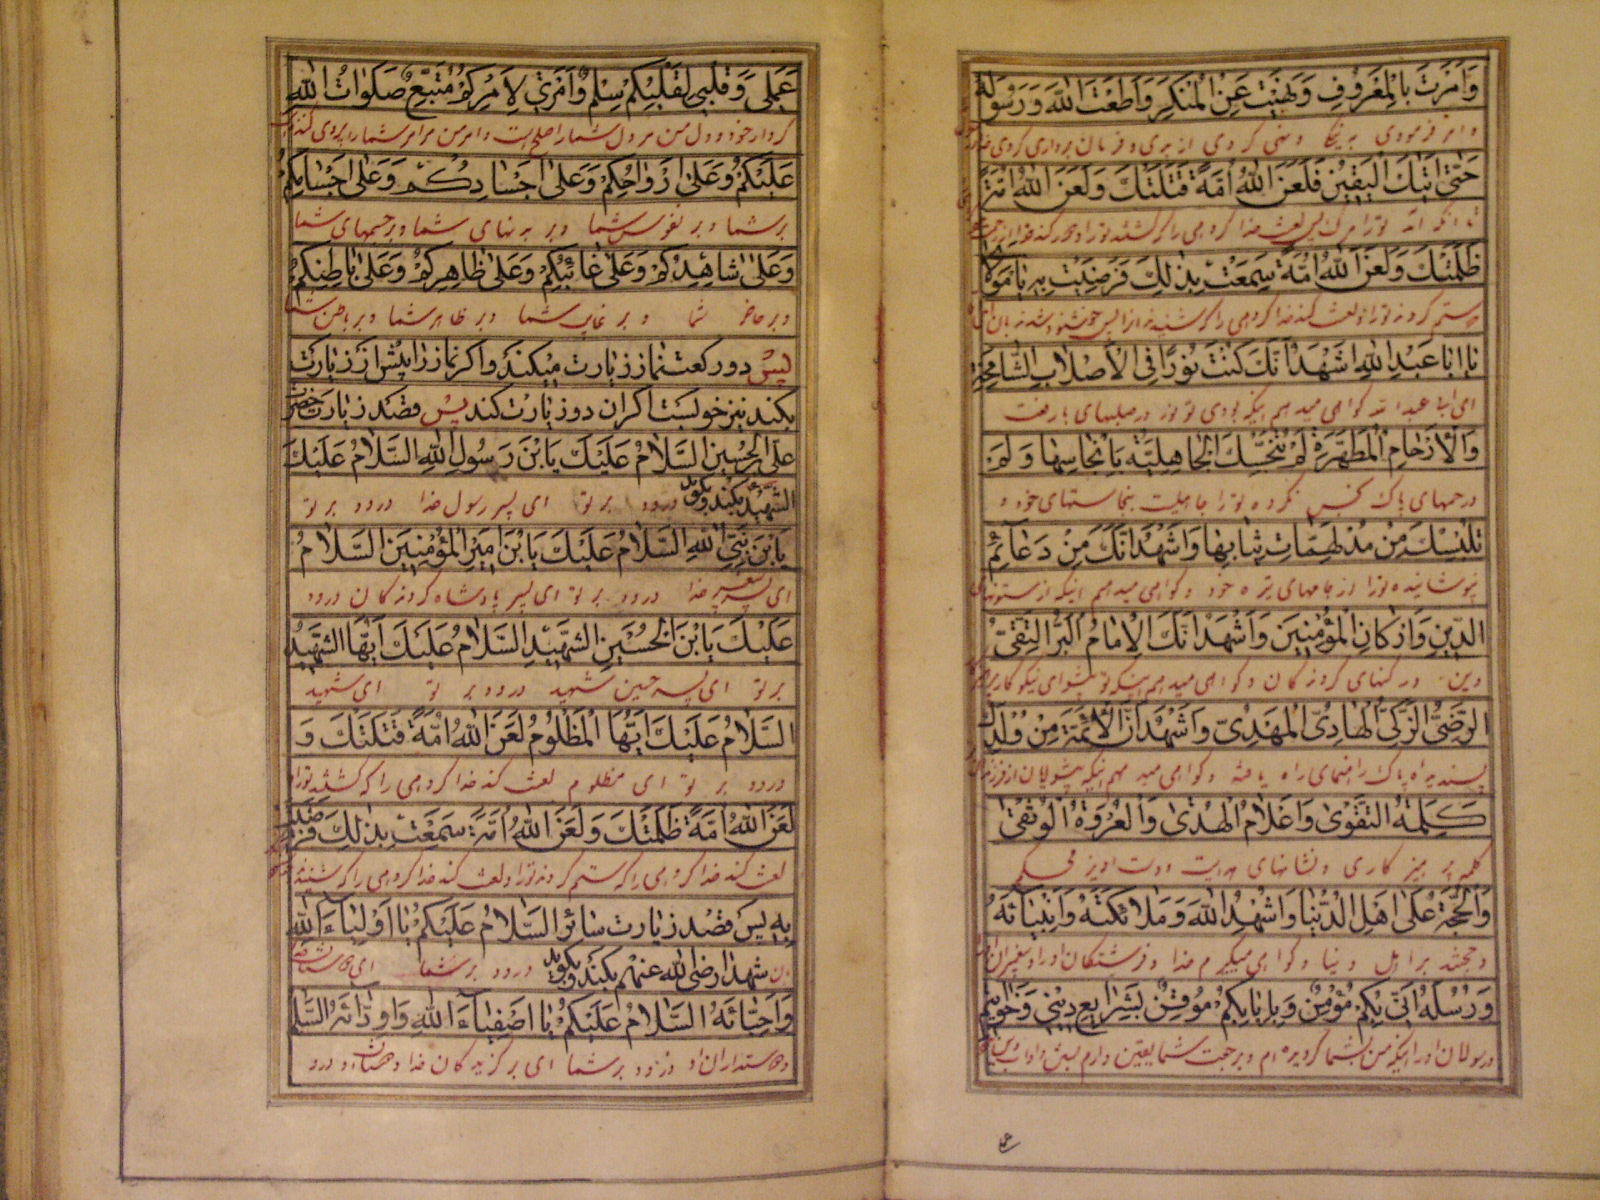 وَاَمَرْتَ بِالْمَعْرُوفِ وَنَهَيْتَ عَنِ الْمُنْكَرِ وَاَطَعْتَ اللّٰهَ وَرَسُولَهُ
و امر فرمودی به نیکی و نهی کردی از بدی و فرمان برداری کردی خدا
حَتّٰى اَتٰيكَ الْيَقِينُ فَلَعَنَ اللّٰهُ اُمَّةً قَتَلَتْكَ وَلَعَنَ اللّٰهُ اُمَّةً
تا آنکه آمد تو را مرگ پس لعنت خدا گروهی را که کشتند تو را و لعنت کند خدا
ظَلَمَتْكَ وَلَعَنَ اللّٰهُ اُمَّةً سَمِعَتْ بِذٰلِكَ فَرَضِيَتْ بِهِ يَا مَوْلَاىَ
ستم کردند تو را و لعنت کند خدا گروهی را که شنیدند این پس خوشنود شدند بآن
يَا اَبَا عَبْدِ اللّٰهِ اَشْهَدُ اَنَّكَ كُنْتَ نُورًا فِى الْاَصْلَابِ الشَّامِخَةِ
ای ابا عبد الله گواهی میدهم اینکه بودی تو نور در صلبهای با رفعت
وَالْاَرْحَامِ الْمُطَهَّرَةِ لَمْ تُنَجِّسْكَ الْجَاهِلِيَّةُ بِاَنْجَاسِهَا وَلَمْ
و رحمهای پاک نجس نکرده تو را جاهلیت بنجاستهای خود و
تُلْبِسْكَ مِنْ مُدْلَهِمَّاتِ ثِيَابِهَا وَاَشْهَدُ اَنَّكَ مِنْ دَعَائِمِ
نپوشانیده تو را از جامهای تیره خود و گواهی میدهم اینکه از ستونهای
الدِّينِ وَاَرْكَانِ الْمُؤْمِنِينَ وَاَشْهَدُ اَنَّكَ الْاِمَامُ الْبَرُّ التَّقِىُّ
دین و رکنهای گروندگان و گواهی میدهم اینکه تو پیشوای نیکوکار
الرَّضِىُّ الزَّكِىُّ الْهَادِىُّ الْمَهْدِىُّ وَاَشْهَدُ اَنَّ الْاَئِمَّةَ مِنْ وُلْدِكَ
پسندیده پاک راهنمای راه یافته و گواهی میدهم اینکه پیشوایان از فرزندان
كَلِمَةُ التَّقْوٰى وَاَعْلَامُ الْهُدٰى وَالْعُرْوَةُ الْوُثْقٰى
کلمه پرهیزکاری و نشانهای هدایت و دست آویز محکم
وَالْحُجَّةُ عَلٰى اَهْلِ الدُّنْيَا وَاُشْهِدُ اللّٰهَ وَمَلَائِكَتَهُ وَاَنْبِيَائَهُ
و حجتند بر اهل دنیا و گواه میگیرم خدا و فرشتگان او را و پیغمبران
وَرُسُلَهُ اَنّى بِكُمْ مُؤْمِنٌ وَبِاِيَابِكُمْ مُوقِنٌ بِشَرَايِعِ دِينِى وَخَوَاتِيمِ
و رسولان او را اینکه من بشما گرویده ام و برجعت شما یقین دارم
عَمَلى وَقَلْبِى لِقَلْبِكُمْ سِلْمٌ وَاَمْرِى لِاَمْرِكُمْ مُتَّبِعٌ صَلَوَاتُ اللّٰهِ
کردار خود و دل من مر دل شما را صلح است و امر من مر امر شما را پیروی کننده
عَلَيْكُمْ وَعَلٰى اَرْوَاحِكُمْ وَعَلٰى اَجْسَادِكُمْ وَعَلٰى اَجْسَامِكُمْ
بر شما و بر نفوس شما و بر بدنهای شما و بر جسمهای شما
وَعَلٰى شَاهِدِكُمْ وَعَلٰى غَائِبِكُمْ وَعَلٰى ظَاهِرِكُمْ وَعَلٰى بَاطِنِكُمْ
و بر حاضر شما و بر غایب شما و بر ظاهر شما و بر باطن شما
پس دو رکعت نماز زیارت میکند و اگر نماز را پیش از زیارت
بکند نیز خوبست اگر آن دو زیارت کند پس قصد زیارت حضرت
علی بن الحسین السَّلَامُ عَلَيْكَ يَابْنَ رَسُولِ اللّٰهِ السَّلَامُ عَلَيْكَ
الشهید بکند و بگوید درود بر تو ای پسر رسول خدا درود بر تو
يَابْنَ نَبِىِّ اللّٰهِ السَّلَامُ عَلَيْكَ يَابْنَ اَمِيرِ الْمُؤْمِنِينَ السَّلَامُ
ای پسر پیغمبر خدا درود بر تو ای پسر پادشاه گروندگان درود
عَلَيْكَ يَابْنَ الْحُسَيْنِ الشَّهِيدِ السَّلَامُ عَلَيْكَ اَيُّهَا الشَّهِيدُ
بر تو ای پسر حسین شهید درود بر تو ای شهید
السَّلَامُ عَلَيْكَ اَيُّهَا الْمَظْلُومُ لَعَنَ اللّٰهُ اُمَّةً قَتَلَتْكَ وَ
درود بر تو ای مظلوم لعنت کند خدا گروهی را که کشتند تو را
لَعَنَ اللّٰهُ اُمَّةً ظَلَمَتْكَ وَلَعَنَ اللّٰهُ اُمَّةً سَمِعَتْ بِذٰلِكَ فَرَضِيَتْ
لعنت کند خدا گروهی را که ستم کردند تو را و لعنت کند خدا گروهی را که شنیدند
بِهِ پس قصد زیارت سائر السَّلَامُ عَلَيْكُمْ يَا اَوْلِيَاءَ اللّٰهِ
بآن شهدا رضی الله عنهم بکند و بگوید درود بر شما ای
وَاَحِبَّائَهُ السَّلَامُ عَلَيْكُمْ يَا اَصْفِيَاءَ اللّٰهِ وَاَوِدَّائَهُ السَّلَا
و دوستداران او درود بر شما ای برگزیدگان خدا و درود